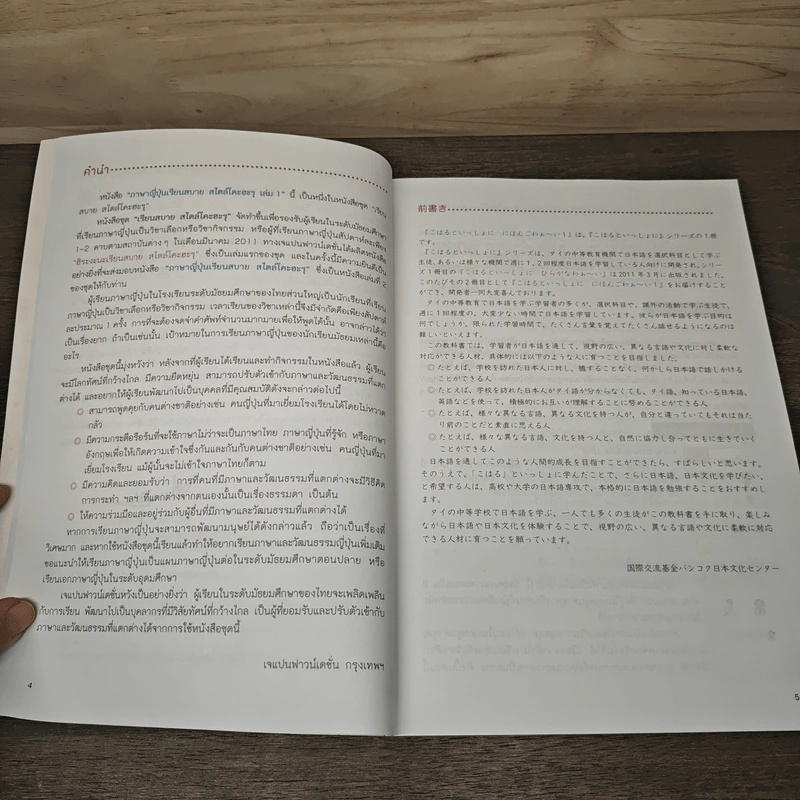 คำนำ
หนังสือ "ภาษาญี่ปุ่นเรียนสบาย สไตล์โคะฮะรุ เล่ม 1" นี้ เป็นหนึ่งในหนังสือชุด "เรียน
สบาย สไตล์โคะฮะรุ"
หนังสือชุด "เรียนสบาย สไตล์โคะฮะรุ" จัดทำขึ้นเพื่อรองรับผู้เรียนในระดับมัธยมศึกษา
ที่เรียนภาษาญี่ปุ่นเป็นวิชาเลือกหรือวิชากิจกรรม หรือผู้ที่เรียนภาษาญี่ปุ่นสัปดาห์ละเพียง
1-2 คาบตามสถาบันต่างๆ ในเดือนมีนาคม 2011 ทางเจแปนฟาวน์เดชั่นได้ผลิตหนังสือ
"ฮิระงะนะเรียนสบาย สไตล์โคะฮะรุ" ซึ่งเป็นเล่มแรกของชุด และในครั้งนี้มีความยินดีเป็น
อย่างยิ่งที่จะส่งมอบหนังสือ "ภาษาญี่ปุ่นเรียนสบาย สไตล์โคะฮะรุ" ซึ่งเป็นหนังสือเล่มที่ 2
ของชุดให้กับท่าน
ผู้เรียนภาษาญี่ปุ่นในโรงเรียนระดับมัธยมศึกษาของไทยส่วนใหญ่เป็นนักเรียนที่เรียน
ภาษาญี่ปุ่นเป็นวิชาเลือกหรือวิชากิจกรรม เวลาเรียนของวิชาเหล่านี้จึงมีจำกัดคือเพียงสัปดาห์
ละประมาณ 1 ครั้ง การที่จะต้องจดจำคำศัพท์จำนวนมากมายเพื่อให้พูดได้นั้น อาจกล่าวได้ว่า
เป็นเรื่องยาก ถ้าเป็นเช่นนั้น เป้าหมายในการเรียนภาษาญี่ปุ่นของนักเรียนมัธยมเหล่านี้คือ
อะไร
หนังสือชุดนี้มุ่งหวังว่า หลังจากที่ผู้เรียนได้เรียนและทำกิจกรรมในหนังสือแล้ว ผู้เรียน
จะมีโลกทัศน์ที่กว้างไกล มีความยืดหยุ่น สามารถปรับตัวเข้ากับภาษาและวัฒนธรรมที่แตก
ต่างได้ และอยากให้ผู้เรียนพัฒนาไปเป็นบุคคลที่มีคุณสมบัติดังจะกล่าวต่อไปนี้
สามารถพูดคุยกับคนต่างชาติอย่างเช่น คนญี่ปุ่นที่มาเยี่ยมโรงเรียนได้โดยไม่หวาด
กลัว
มีความกระตือรือร้นที่จะใช้ภาษาไม่ว่าจะเป็นภาษาไทย ภาษาญี่ปุ่นที่รู้จัก หรือภาษา
อังกฤษเพื่อให้เกิดความเข้าใจซึ่งกันและกันกับคนต่างชาติอย่างเช่น คนญี่ปุ่นที่มา
เยี่ยมโรงเรียน แม้ผู้นั้นจะไม่เข้าใจภาษาไทยก็ตาม
มีความคิดและยอมรับว่า การที่คนที่มีภาษาและวัฒนธรรมที่แตกต่างจะมีวิธีคิด
การกระทำ ฯลฯ ที่แตกต่างจากตนเองนั้นเป็นเรื่องธรรมดา เป็นต้น
ให้ความร่วมมือและอยู่ร่วมกับผู้อื่นที่มีภาษาและวัฒนธรรมที่แตกต่างได้
หากการเรียนภาษาญี่ปุ่นจะสามารถพัฒนามนุษย์ได้ดังกล่าวแล้ว ถือว่าเป็นเรื่องที่
วิเศษมาก และหากใช้หนังสือชุดนี้เรียนแล้วทำให้อยากเรียนภาษาและวัฒนธรรมญี่ปุ่นเพิ่มเติม
ขอแนะนำให้เรียนภาษาญี่ปุ่นเป็นแผนภาษาญี่ปุ่นต่อในระดับมัธยมศึกษาตอนปลาย หรือ
เรียนเอกภาษาญี่ปุ่นในระดับอุดมศึกษา
เจแปนฟาวน์เดชั่นหวังเป็นอย่างยิ่งว่า ผู้เรียนในระดับมัธยมศึกษาของไทยจะเพลิดเพลิน
กับการเรียน พัฒนาไปเป็นบุคลากรที่มีวิสัยทัศน์ที่กว้างไกล เป็นผู้ที่ยอมรับและปรับตัวเข้ากับ
ภาษาและวัฒนธรรมที่แตกต่างได้จากการใช้หนังสือชุดนี้
เจแปนฟาวน์เดชั่น กรุงเทพฯ
4
前書き
『こはるといっしょに にほんごわぁ〜い1』は、『こはるといっしょに』シリーズの1冊
です。
『こはるといっしょに』シリーズは、タイの中等教育機関で日本語を選択科目として学ぶ
生徒、あるいは様々な機関で週に1、2回程度日本語を学習している人向けに開発され、シリー
ズ1冊目の『こはるといっしょに ひらがなわぁ〜い』は2011年3月に出版されました。
このたびその2冊目として『こはるといっしょに にほんごわぁ〜い1』をお届けすること
ができ、開発者一同大変喜んでおります。
タイの中等教育で日本語を学ぶ学習者の多くが、選択科目や、課外の活動で学ぶ生徒で、
週に1回程度の、大変少ない時間で日本語を学習しています。彼らが日本語を学ぶ目的は
何でしょうか。限られた学習時間で、たくさん言葉を覚えてたくさん話せるようになるのは
難しいといえます。
この教科書では、学習者が日本語を通して、視野の広い、異なる言語や文化に対し柔軟な
対応ができる人材、具体的には以下のような人に育つことを目指しました。
◎たとえば、学校を訪れた日本人に対し、臆することなく、何かしら日本語で話しかける
ことができる人
◎たとえば、学校を訪れた日本人がタイ語が分からなくても、タイ語、知っている日本語、
英語などを使って、積極的にお互いが理解することに努めることができる人
◎たとえば、様々な異なる言語、異なる文化を持つ人が、自分と違っていてもそれは当た
り前のことだと素直に思える人
◎たとえば、様々な異なる言語、文化を持つ人と、自然に協力し合ってともに生きていく
ことができる人
日本語を通してこのような人間的成長を目指すことができたら、すばらしいと思います。
そのうえで、『こはる』といっしょに学んだことで、さらに日本語、日本文化を学びたい、
と希望する人は、高校や大学の日本語専攻で、本格的に日本語を勉強することをおすすめし
ます。
タイの中等学校で日本語を学ぶ、一人でも多くの生徒がこの教科書を手に取り、楽しみ
ながら日本語や日本文化を体験することで、視野の広い、異なる言語や文化に柔軟に対応
できる人材に育つことを願っています。
国際交流基金バンコク日本文化センター
5